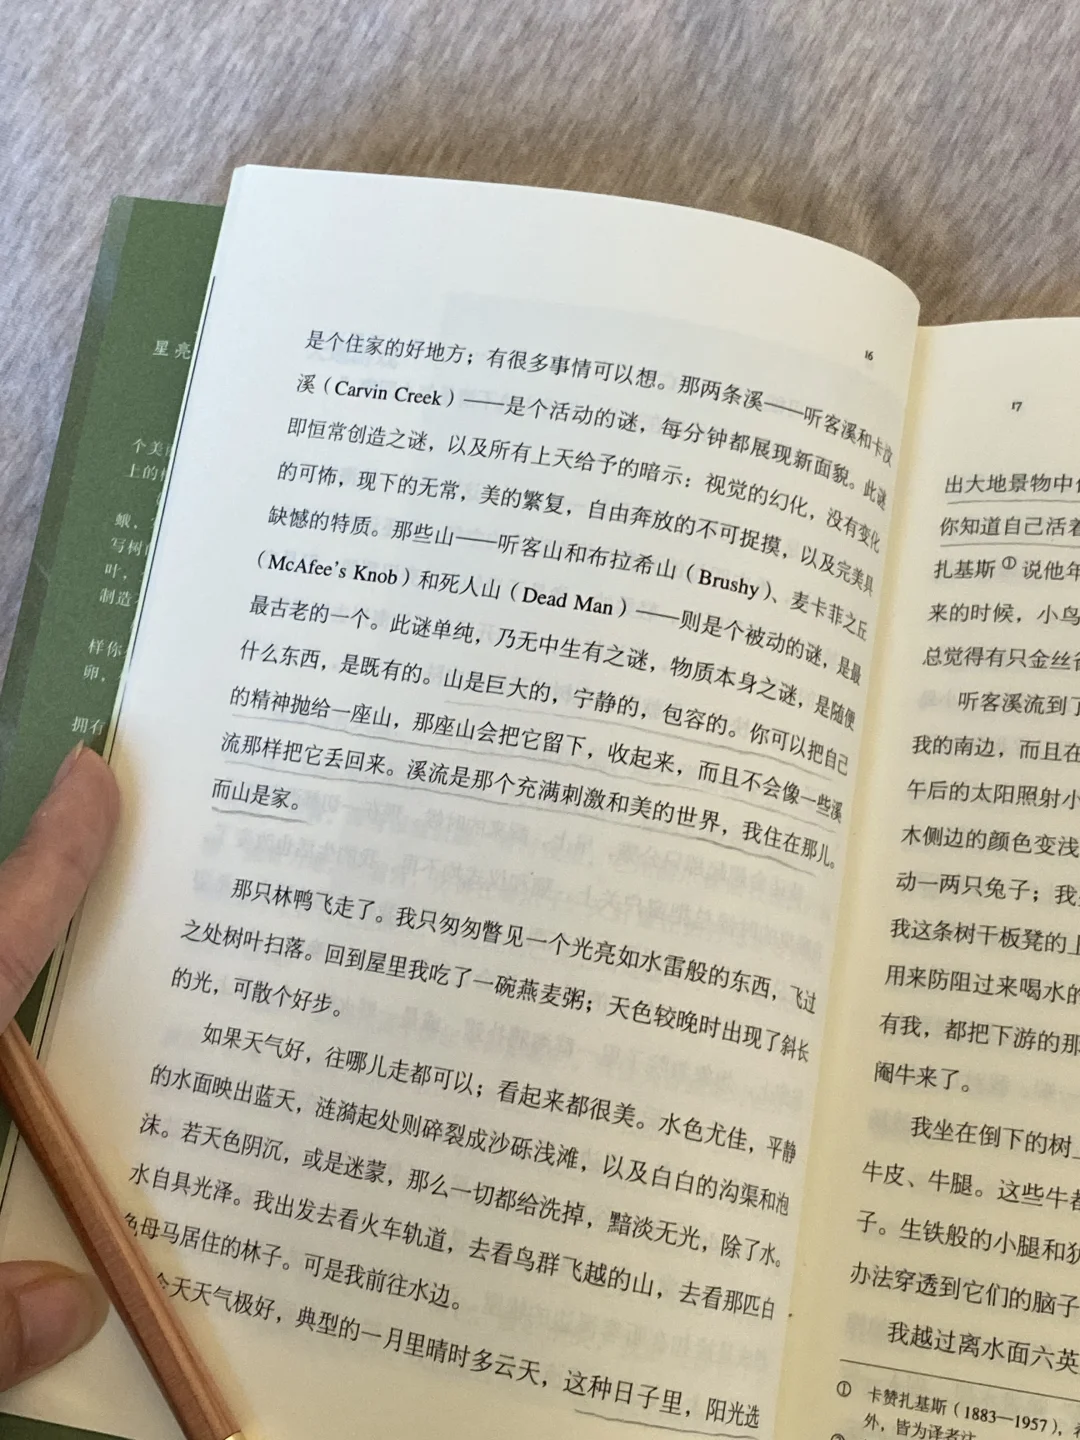 星亮
个美
上的
蛾，
写树
叶，
制造
样你
卵，
拥有
16
是个住家的好地方；有很多事情可以想。那两条溪——听客溪和卡汶
溪（Carvin Creek）——是个活动的谜，每分钟都展现新面貌。此谜
即恒常创造之谜，以及所有上天给予的暗示：视觉的幻化，没有变化
的可怖，现下的无常，美的繁复，自由奔放的不可捉摸，以及完美具
缺憾的特质。那些山——听客山和布拉希山（Brushy）、麦卡菲之丘
（McAfee's Knob）和死人山（Dead Man）——则是个被动的谜，是最
最古老的一个。此谜单纯，乃无中生有之谜，物质本身之谜，是随便
什么东西，是既有的。山是巨大的，宁静的，包容的。你可以把自己
的精神抛给一座山，那座山会把它留下，收起来，而且不会像一些溪
流那样把它丢回来。溪流是那个充满刺激和美的世界，我住在那儿。
而山是家。
那只林鸭飞走了。我只匆匆瞥见一个光亮如水雷般的东西，飞过
之处树叶扫落。回到屋里我吃了一碗燕麦粥；天色较晚时出现了斜长
的光，可散个好步。
如果天气好，往哪儿走都可以；看起来都很美。水色尤佳，平静
的水面映出蓝天，涟漪起处则碎裂成沙砾浅滩，以及白白的沟渠和泡
沫。若天色阴沉，或是迷蒙，那么一切都给洗掉，黯淡无光，除了水。
水自具光泽。我出发去看火车轨道，去看鸟群飞越的山，去看那匹白
色母马居住的林子。可是我前往水边。
今天天气极好，典型的一月里晴时多云天，这种日子里，阳光选
17
出大地景物中
你知道自己活着
扎基斯①说他年
来的时候，小鸟
总觉得有只金丝
听客溪流到了
我的南边，而且在
午后的太阳照射小
木侧边的颜色变浅
动一两只兔子；我
我这条树干板凳的上
用来防阻过来喝水的
有我，都把下游的那
阉牛来了。
我坐在倒下的树
牛皮、牛腿。这些牛都
子。生铁般的小腿和
办法穿透到它们的脑子
我越过离水面六英
① 卡赞扎基斯（1883—1957），
外，皆为译者注